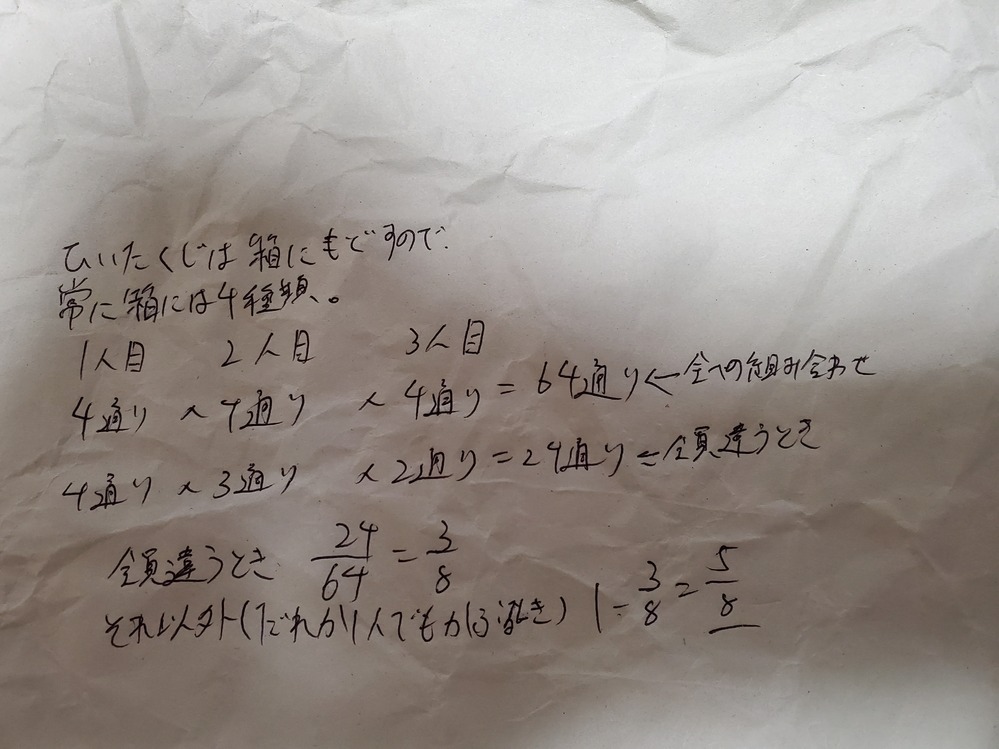 ひいたくじは箱にもどすので
常に箱には4種類。
1人目 2人目 3人目
4通り × 4通り × 4通り = 64通り ← 全ての組み合わせ
4通り × 3通り × 2通り = 24通り ← 全員違うとき
全員違うとき 24/64 = 3/8
それ以外(だれか1人でもかぶるとき) 1 - 3/8 = 5/8